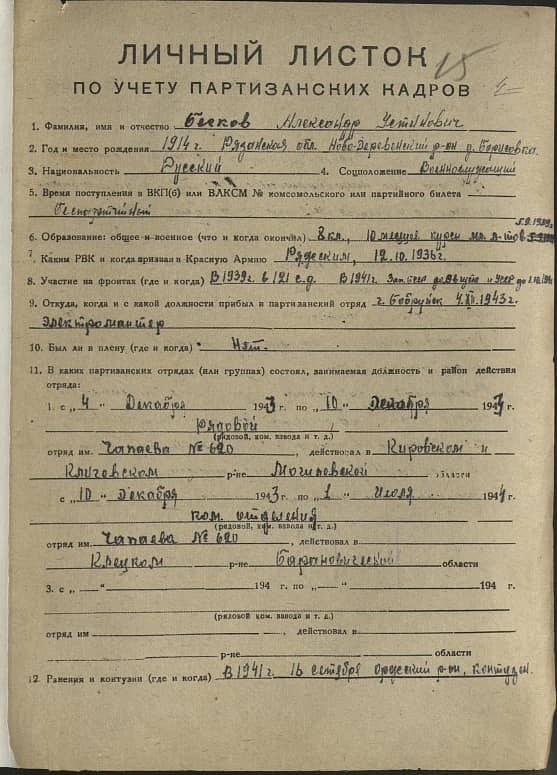 ЛИЧНЫЙ ЛИСТОК 15
ПО УЧЕТУ ПАРТИЗАНСКИХ КАДРОВ
1. Фамилия, имя и отчество Бесков Александр Устинович
2. Год и место рождения 1914 г. Рязанская обл. Ново-Деревенский р-он д. Борисовка.
3. Национальность Русский 4. Соцположение Военнослужащий
5. Время поступления в ВКП(б) или ВЛКСМ № комсомольского или партийного билета
беспартийный
6. Образование: общее и военное (что и когда окончил) 8 кл., 10 месяцев курсы мл. л-тов
7. Каким РВК и когда призван в Красную Армию Ряжским, 12.10.1936 г.
8. Участие на фронтах (где и когда) В 1939 г. в 121 с.д. В 1941 г.
9. Откуда, когда и с какой должности прибыл в партизанский отряд г. Бобруйск 4.XII.1943 г.
Электромонтер
10. Был ли в плену (где и когда) Нет.
11. В каких партизанских отрядах (или группах) состоял, занимаемая должность и район действия
отряда:
1. с „ 4 “ Декабря 1943 г. по „ 10 “ Декабря 1943 г.
Рядовой
(рядовой, ком. взвода и т. д.)
отряд им. Чапаева № 620, действовал в Кировском и
Кличевском р-не Могилевской области
с „ 10 “ Декабря 1943 г. по „ 1 “ Июля 1944 г.
ком. отделения
(рядовой, ком. взвода и т. д.)
отряд им. Чапаева № 620, действовал в
Клецком р-не Барановической области
3. с „ “ 194 г. по „ “ 194 г.
(рядовой, ком. взвода и т. д.)
отряд им , действовал в
р-не области
12. Ранения и контузии (где и когда) В 1941 г. 16 сентября р-он, контузен.